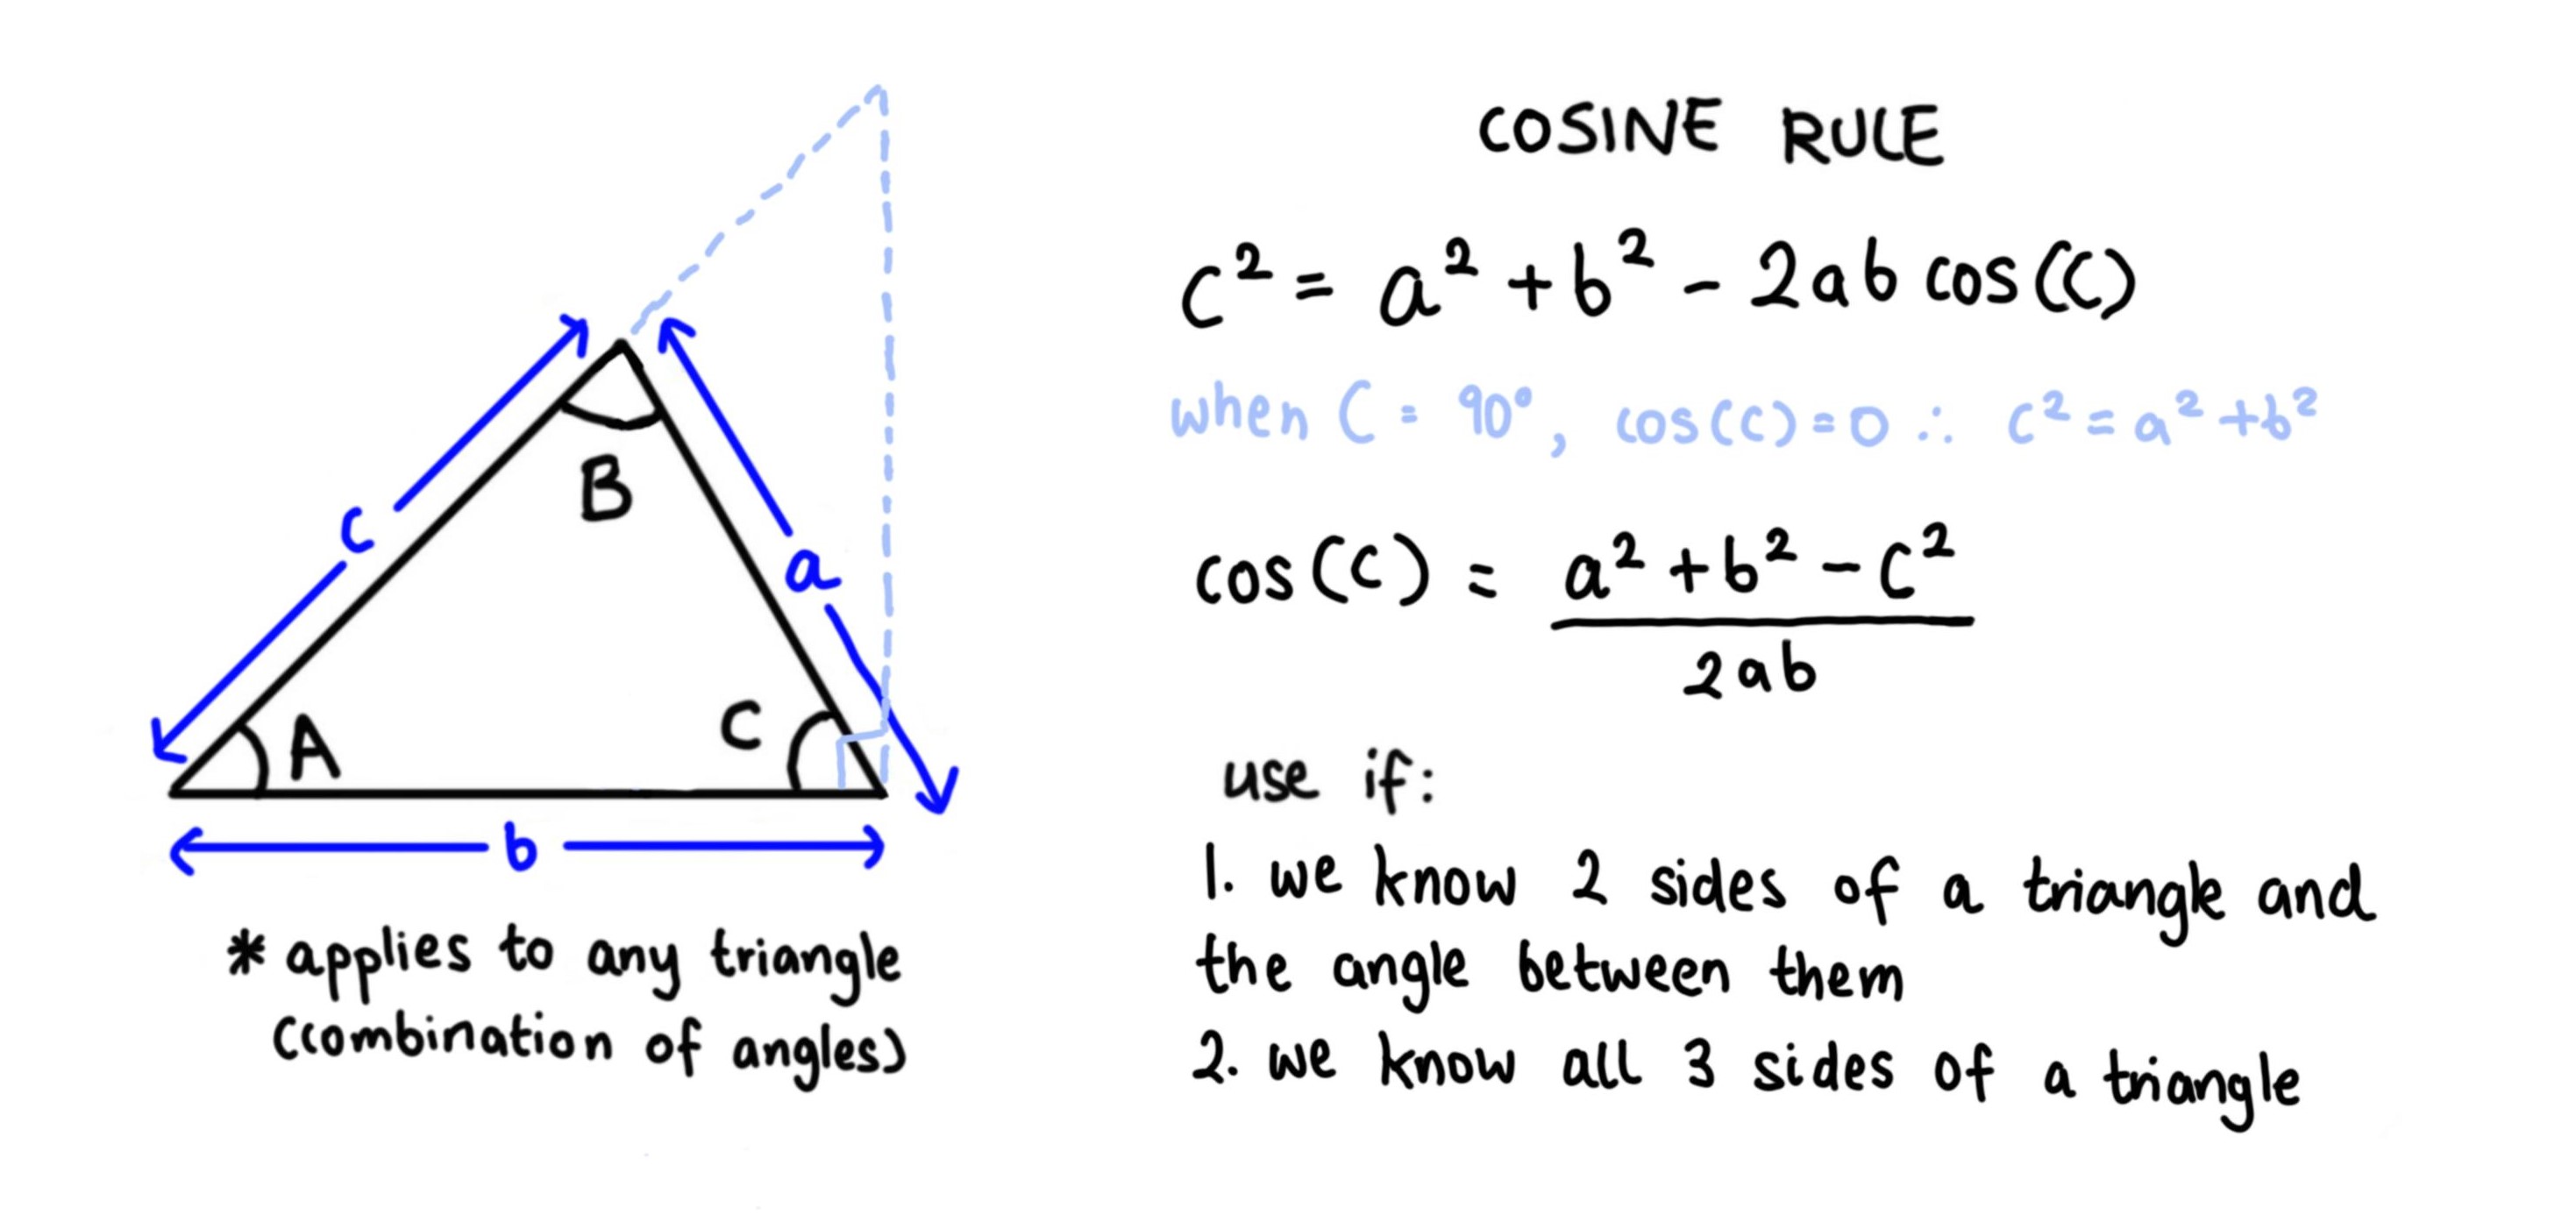 c
B
a
A
C
b
* applies to any triangle
(combination of angles)
COSINE RULE
c² = a² + b² - 2ab cos(C)
when C = 90°, cos(C) = 0 ∴ c² = a² + b²
cos(C) = a² + b² - c²
2ab
use if:
1. we know 2 sides of a triangle and
the angle between them
2. we know all 3 sides of a triangle